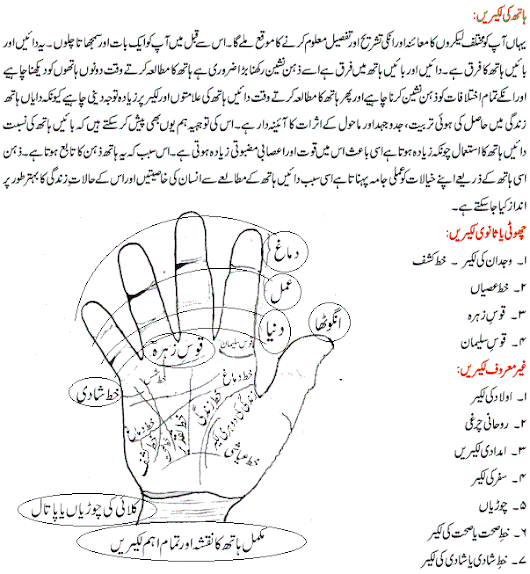 ہاتھ کی لکیریں:
یہاں آپ کو مختلف لکیروں کا معائنہ اور انکی تشریح اور تفصیل معلوم کرنے کا موقع ملے گا۔ اس سے قبل میں آپ کو ایک بات اور سمجھاتا چلوں۔ یہ دائیں اور
بائیں ہاتھ کا فرق ہے۔ دائیں اور بائیں ہاتھ میں فرق ہے اسے ذہن نشین رکھنا بڑا ضروری ہے ہاتھ کا مطالعہ کرتے وقت دونوں ہاتھوں کو دیکھنا چاہیے
اور انکے تمام اختلافات کو ذہن نشین کرنا چاہیے اور پھر ہاتھ کا مطالعہ کرتے وقت دائیں ہاتھ کی علامتوں اور لکیر پر زیادہ توجہ دینی چاہیے کیونکہ دایاں ہاتھ
زندگی میں حاصل کی ہوئی تربیت، جدوجہد اور ماحول کے اثرات کا آئینہ دار ہے۔ اس کی توجیہ ہم یوں بھی پیش کر سکتے ہیں کہ بائیں ہاتھ کی نسبت
دائیں ہاتھ کا استعمال چونکہ زیادہ ہوتا ہے اسی باعث اس میں قوت اور اعصابی مضبوتی زیادہ ہوتی ہے۔ اس سبب کہ یہ ہاتھ ذہن کا تابع ہوتا ہے۔ ذہن
اسی ہاتھ کے ذریعے اپنے خیالات کو عملی جامہ پہناتا ہے اسی سبب دائیں ہاتھ کے مطالعے سے انسان کی خاصیتیں اور اس کے حالاتِ زندگی کا بہتر طور پر
انداز کیا جا سکتے ہے۔
چھوٹی یا ثانوی لکیریں:
۱۔ وجدان کی لکیر ۔ خط کشف
۲۔ خط عصیاں
۳۔ قوسِ زہرہ
۴۔ قوسِ سلیمان
غیر معروف لکیریں:
۱۔ اولاد کی لکیر
۲۔ روحانی چرغی
۳۔ امدادی لکیریں
۴۔ سفر کی لکیر
۵۔ چوڑیاں
۶۔ خطِ صحت یا صحت کی لکیر
۷۔ خطِ شادی یا شادی کی لکیر
دماغ
عمل
دنیا
انگوٹھا
قوسِ زہرہ
قوس سلیمان
خط شادی
خط شمس
خط دماغ
خط دماغ
خط زندگی
زندگی کی دوہری لکیر
خط کشف
خط عیاشی
کلائی کی چوڑیاں یا پاتال
مکمل ہاتھ کا نقشہ اور تمام اہم لکیریں